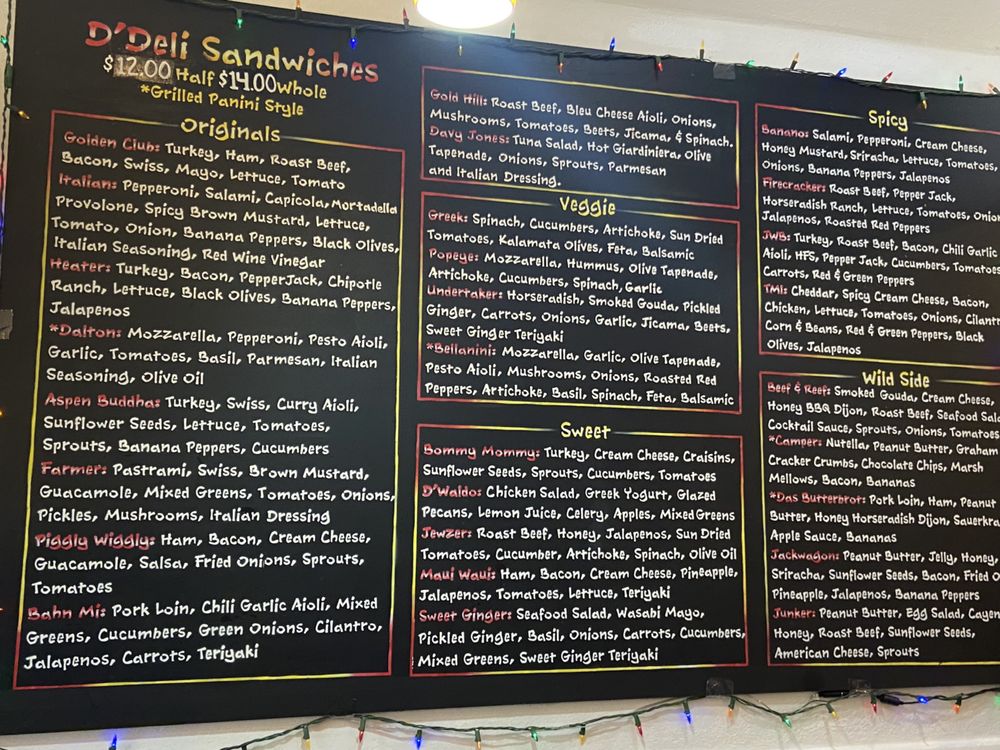 D'Deli Sandwiches
$12.00 Half $14.00 Whole
*Grilled Panini Style
Originals
Golden Club: Turkey, Ham, Roast Beef,
Bacon, Swiss, Mayo, Lettuce, Tomato
Italian: Pepperoni, Salami, Capicola, Mortadella
Provolone, Spicy Brown Mustard, Lettuce,
Tomato, Onion, Banana Peppers, Black Olives,
Italian Seasoning, Red Wine Vinegar
Heater: Turkey, Bacon, PepperJack, Chipotle
Ranch, Lettuce, Black Olives, Banana Peppers,
Jalapenos
*Dalton: Mozzarella, Pepperoni, Pesto Aioli,
Garlic, Tomatoes, Basil, Parmesan, Italian
Seasoning, Olive Oil
Aspen Buddha: Turkey, Swiss, Curry Aioli,
Sunflower Seeds, Lettuce, Tomatoes,
Sprouts, Banana Peppers, Cucumbers
Farmer: Pastrami, Swiss, Brown Mustard,
Guacamole, Mixed Greens, Tomatoes, Onions,
Pickles, Mushrooms, Italian Dressing
Piggly Wiggly: Ham, Bacon, Cream Cheese,
Guacamole, Salsa, Fried Onions, Sprouts,
Tomatoes
Bahn Mi: Pork Loin, Chili Garlic Aioli, Mixed
Greens, Cucumbers, Green Onions, Cilantro,
Jalapenos, Carrots, Teriyaki
Gold Hill: Roast Beef, Bleu Cheese Aioli, Onions,
Mushrooms, Tomatoes, Beets, Jicama, & Spinach.
Davy Jones: Tuna Salad, Hot Giardiniera, Olive
Tapenade, Onions, Sprouts, Parmesan
and Italian Dressing.
Veggie
Greek: Spinach, Cucumbers, Artichoke, Sun Dried
Tomatoes, Kalamata Olives, Feta, Balsamic
Popeye: Mozzarella, Hummus, Olive Tapenade,
Artichoke, Cucumbers, Spinach, Garlic
Undertaker: Horseradish, Smoked Gouda, Pickled
Ginger, Carrots, Onions, Garlic, Jicama, Beets,
Sweet Ginger Teriyaki
*Bellanini: Mozzarella, Garlic, Olive Tapenade,
Pesto Aioli, Mushrooms, Onions, Roasted Red
Peppers, Artichoke, Basil, Spinach, Feta, Balsamic
Sweet
Bommy Mommy: Turkey, Cream Cheese, Craisins,
Sunflower Seeds, Sprouts, Cucumbers, Tomatoes
D'Waldo: Chicken Salad, Greek Yogurt, Glazed
Pecans, Lemon Juice, Celery, Apples, Mixed Greens
Jewzer: Roast Beef, Honey, Jalapenos, Sun Dried
Tomatoes, Cucumber, Artichoke, Spinach, Olive Oil
Maui Waui: Ham, Bacon, Cream Cheese, Pineapple,
Jalapenos, Tomatoes, Lettuce, Teriyaki
Sweet Ginger: Seafood Salad, Wasabi Mayo,
Pickled Ginger, Basil, Onions, Carrots, Cucumbers,
Mixed Greens, Sweet Ginger Teriyaki
Spicy
Banano: Salami, Pepperoni, Cream Cheese,
Honey Mustard, Sriracha, Lettuce, Tomatoes,
Onions, Banana Peppers, Jalapenos
Firecracker: Roast Beef, Pepper Jack,
Horseradish Ranch, Lettuce, Tomatoes, Onion
Jalapenos, Roasted Red Peppers
JWB: Turkey, Roast Beef, Bacon, Chili Garlic
Aioli, HFS, Pepper Jack, Cucumbers, Tomatoes
Carrots, Red & Green Peppers
TMI: Cheddar, Spicy Cream Cheese, Bacon,
Chicken, Lettuce, Tomatoes, Onions, Cilantr
Corn & Beans, Red & Green Peppers, Black
Olives, Jalapenos
Wild Side
Beef & Reef: Smoked Gouda, Cream Cheese,
Honey BBQ Dijon, Roast Beef, Seafood Sala
Cocktail Sauce, Sprouts, Onions, Tomatoes
*Camper: Nutella, Peanut Butter, Graham
Cracker Crumbs, Chocolate Chips, Marsh
Mellows, Bacon, Bananas
*Das Butterbrot: Pork Loin, Ham, Peanut
Butter, Honey Horseradish Dijon, Sauerkra
Apple Sauce, Bananas
Jackwagon: Peanut Butter, Jelly, Honey,
Sriracha, Sunflower Seeds, Bacon, Fried O
Pineapple, Jalapenos, Banana Peppers
Junker: Peanut Butter, Egg Salad, Cayen
Honey, Roast Beef, Sunflower Seeds,
American Cheese, Sprouts